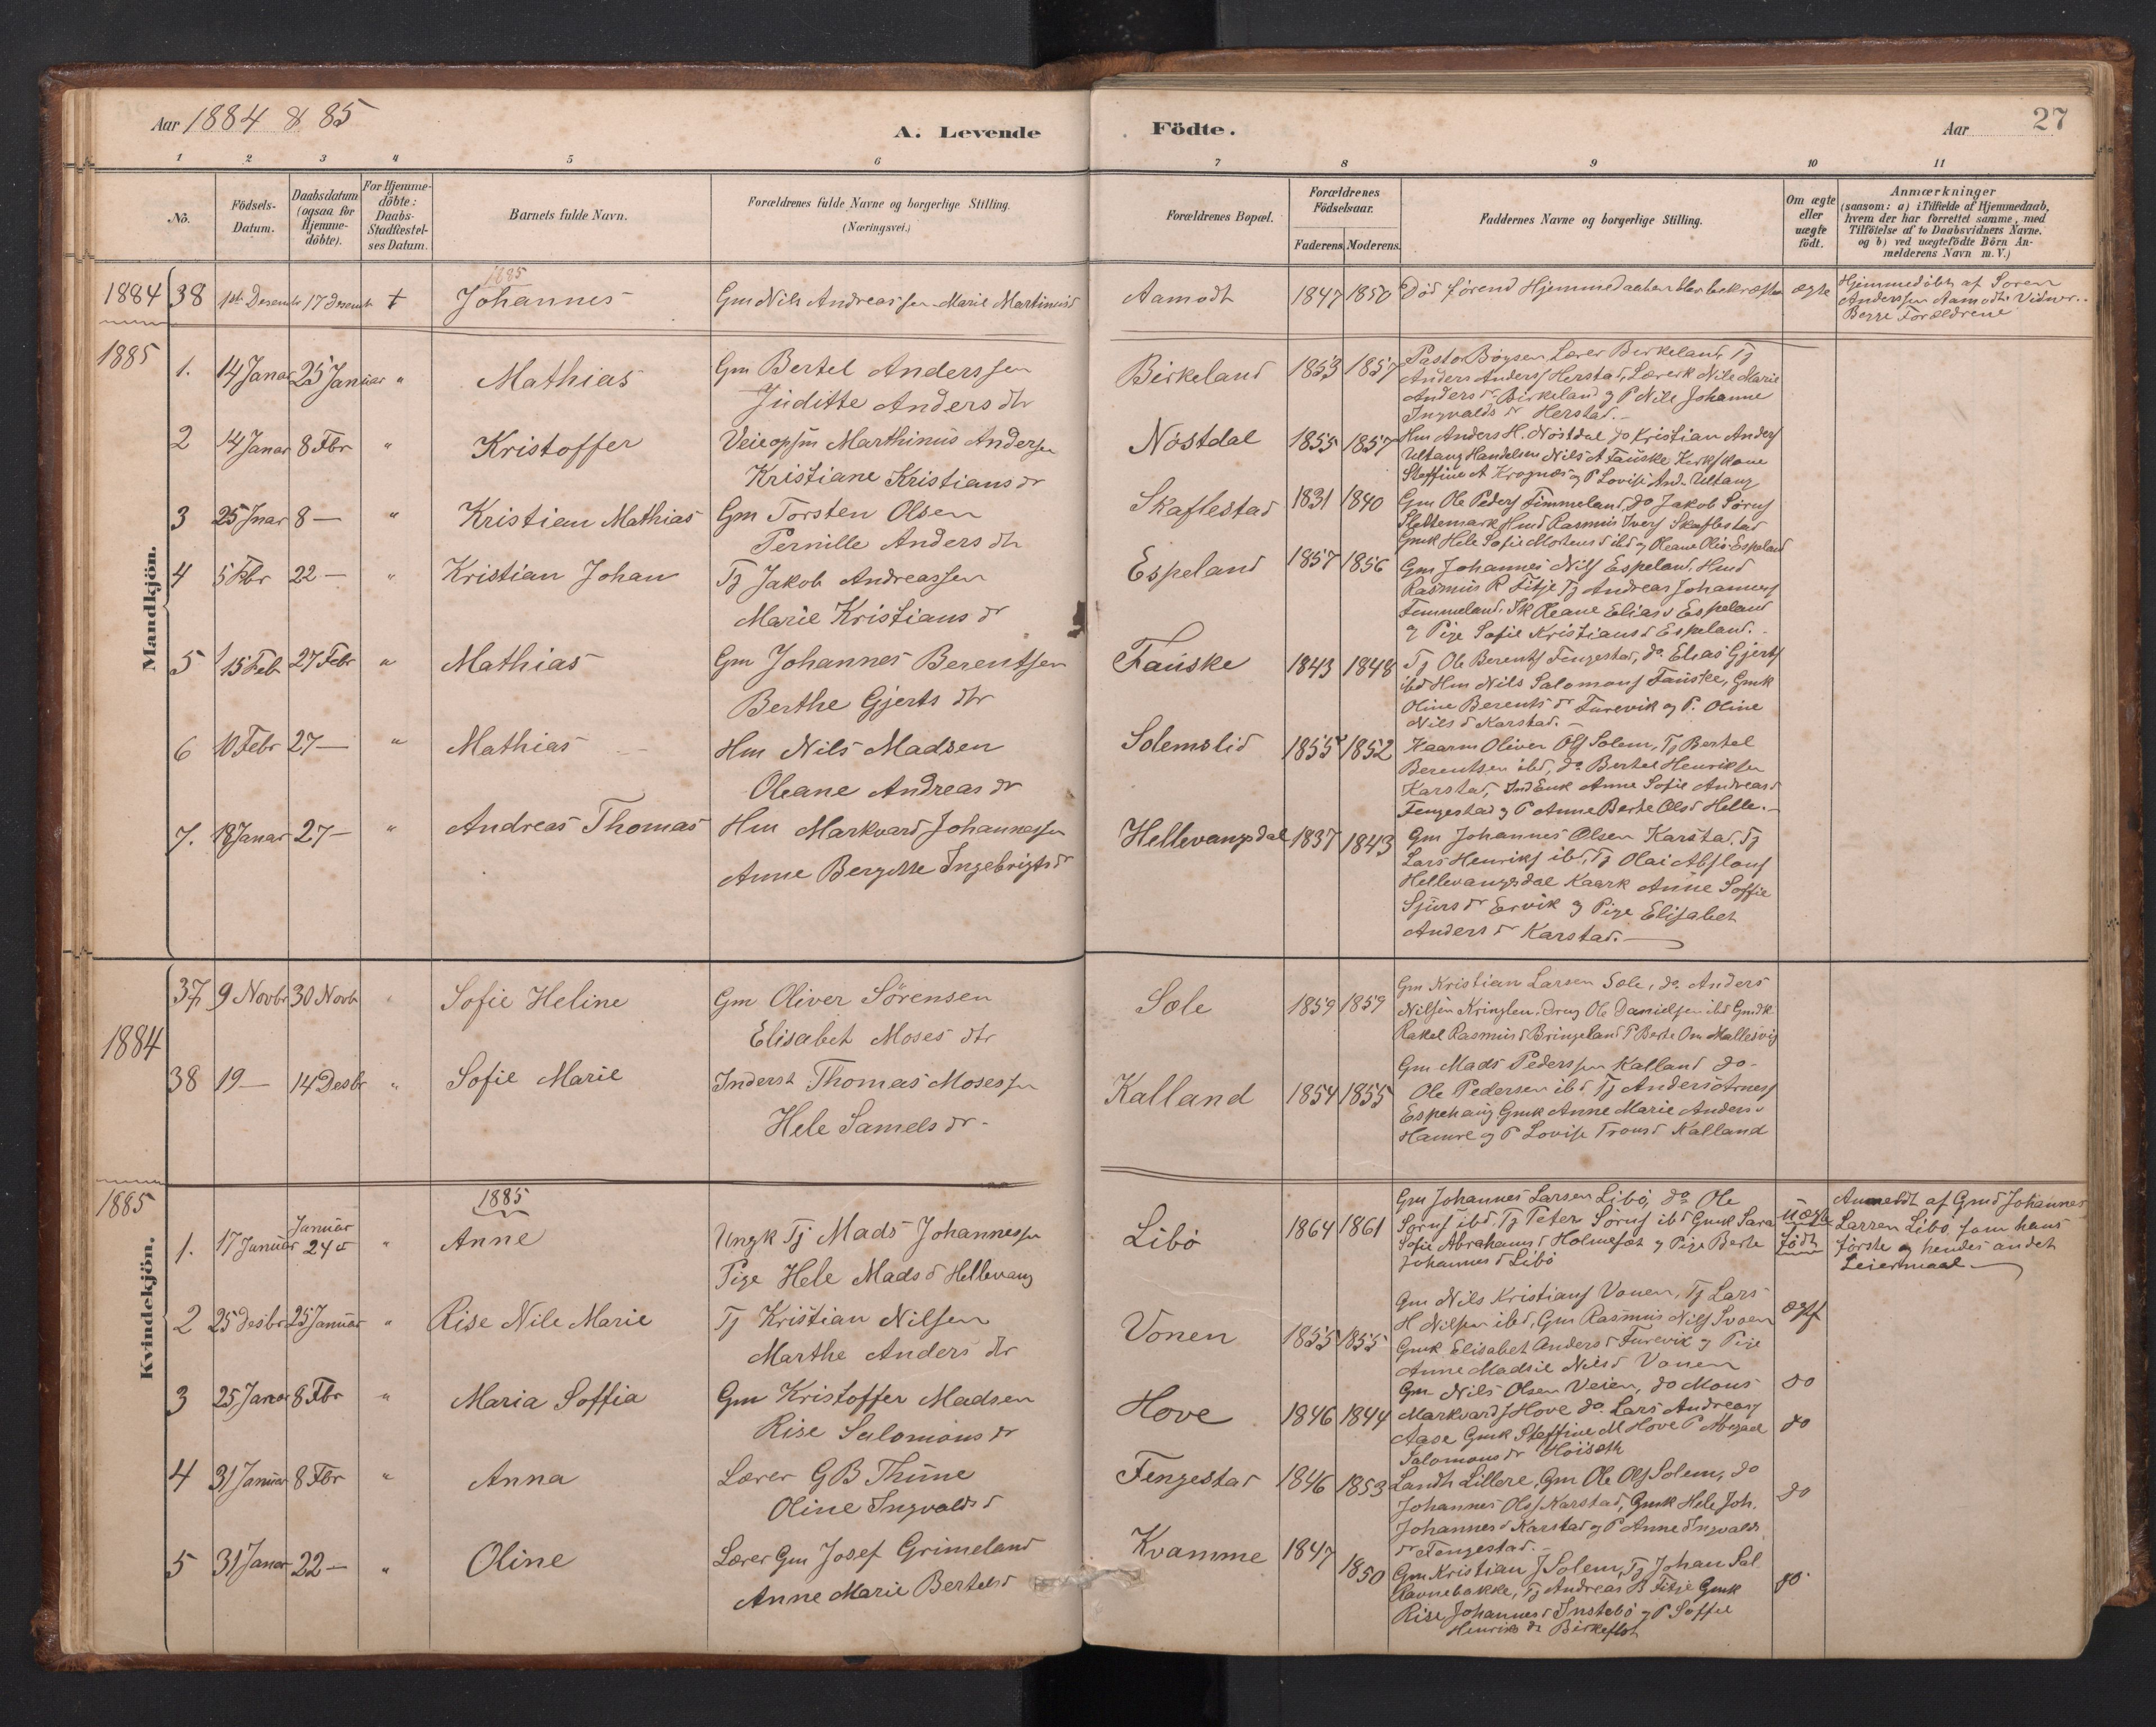 Aar 1884 & 85
A. Levende Födte.
Aar 27
1 2 3 4 5 6 7 8 9 10 11
No.
Födsels-
Datum.
Daabsdatum
(ogsaa for
Hjemme-
döbte).
For Hjemme-
döbte:
Daabs-
Stadfæstel-
ses Datum.
Barnets fulde Navn.
Forældrenes fulde Navne og borgerlige Stilling.
(Næringsvei.)
Forældrenes Bopæl.
Forældrenes
Födselsaar.
Faderens. Moderens.
Faddernes Navne og borgerlige Stilling.
Om ægte
eller
uægte
födt.
Anmærkninger
(saasom: a) i Tilfælde af Hjemmedaab,
hvem der har forrettet samme, med
Tilföielse af to Daabsvidners Navne.
og b) ved uægtefödte Börn An-
melderens Navn m. V.)
Mandkjön.
1884 38 1ste Desembr 17 Desembr † Johannes Gm Nils Andreassen Marie Martinusd Aamodt 1847 1850 Död förend Hjemmedaaben blev bekræftet ægte
Hjemmedöbt af Soren
Anderssen Aamodt Vidner
Begge Forældrene
1885
1885
1. 14 Januar 25 Januar " Mathias Gm Bertel Anderssen
Juditte Anders dtr
Birkeland 1853 1857
Pastor Böysen, Lærer Birkeland, Tj
Anders Anderss Herstad, Lærerk Nile Marie
Anders dr Birkeland og P Nille Johanne
Ingvalds dr Herstad.
2 14 Januar 8 Fbr " Kristoffer Veieopsm Marthinus Andersen
Kristiane Kristians dr
Nöstdal 1855 1857
Hm Anders H. Nöstdal do Kristian Anders
Ultang Handelsm Nils A Fauske Kirkskone
Steffine A Krognæs og P Lovise And. Ultang
3 25 Jnar 8 — " Kristian Mathias Gm Torsten Olsen
Pernille Anders dtr
Skaflestad 1831 1840
Gm Ole Peders Timmeland, do Jakob Sörens
Slettemark Hmd Rasmus Ivers Skaflestad
Gmk Hele Sofie Mortens d ibd og Oleane Olsd Espeland
4 5 Fbr 22 — " Kristian Johan Tj Jakob Andreassen
Marie Kristians dr
Espeland 1857 1856
Gm Johannes Nils Espeland, Hmd
Rasmus R Fitje Tj Andreas Johannes
Timmeland, Tk Oleane Elias d Espeland
og Pige Sofie Kristians d Espeland.
5 15 Feb 27 Febr " Mathias Gm Johannes Berentsen
Berthe Gjerts dtr
Fauske 1843 1848
Tj Ole Berents Fengestad, do Elias Gjerts
ibd Hm Nils Salomons Fauske, Gmk
Oline Berents dr Furevik og P. Oline
Nils d Karstad.
6 10 Febr 27 — " Mathias Hm Nils Madsen
Oleane Andreas dr
Solemslid 1855 1852
Kaarm Oliver Ols Solem, Tj Bertel
Berentsen ibd, do Bertel Henriksen
Karstad, Ind Enk Anne Sofie Andreas d
Fengestad og P Anne Berte Ols d Helle.
7. 18 Januar 27 — " Andreas Thomas Hm Markvard Johannessen
Anne Bergitte Ingebrigts dr
Hellevangsdal 1837 1843
Gm Johannes Olsen Karstad, Tj
Lars Henriks ibd, Tj Olai Abslons
Hellevangsdal Kaark Anne Soffie
Sjurs dr Ervik og Pige Elisabet
Anders dr Karstad.
Kvindekjön.
1884
37 9 Novbr 30 Novb " Sofie Heline Gm Oliver Sörensen
Elisabet Moses dtr
Sole 1859 1859
Gm Kristian Larsen Sole, do Anders
Nilsen Kringlen, Dreng Ole Danielsen ibd Gmdk
Rakel Rasmus d Bringeland P Berte
38 19 — 14 Desbr " Sofie Marie Inderst Thomas Mosessen
Hele Samels dr
Kalland 1854 1855
Gm Mads Pederssen Kalland do
Ole Pedersen ibd. Tj Anders Arness
Espehaug Gmk Anne Marie Anders d
Hamre og P Lovise Trons d Kalland
1885
1885
1. 17 Januar Januar 24de " Anne Ungk Tj Mads Johannessen
Pige Hele Mads d Hellevang
Libö 1864 1861
Gm Johannes Larsen Libö, do Ole
Sörens ibd, Tj Peter Sörens ibd Gmk Sara
Sofie Abrahams d Holmesæt og Pige Berte
Johannes d Libö
uægte
Födt
Anmeldt af Gmd Johannes
Larsen Libö som hans
förste og hendes andet
Leiermaal
2 25 Desbr 25 Januar " Rise Nile Marie Tj Kristian Nilsen
Marthe Anders dr
Vonen 1855 1855
Gm Nils Kristians Vonen, Tj Lars
H Nilsen ibd, Gm Rasmus Nils Svoen
Gmk Elisabet Anders d Furevik og Pige
Anne Madsie Nils d Vonen
ægte
3 25 Januar 8 Fbr " Maria Soffia Gm Kristoffer Madsen
Rise Salomons dr
Hove 1846 1844
Gm Nils Olsen Veien, do Mons
Markvards Hove do. Lars Andreas
Aase Gmk Steffine M Hove P Abigael
Salomons dr Höiseth
do
do
4 31 Januar 8 Fbr " Anna Lærer G B Thune
Oline Ingvalds d
Fengestad 1846 1853
Landh Lillere, Gm Ole Ols Solem, do
Johannes Ols Karstad, Gmk Hele Joh.
Johannes d Karstad og P Anne Ingvalds
dr Fengestad.
do
5 31 Januar 22 — " Oline Lærer Gm Josef Grimeland
Anne Marie Bertels d
Kvamme 1847 1850
Gm Kristian J Solem, Tj Johan Sal.
Ravnebakke, Tj Andreas B Fitje Gmk
Rise Johannes d Instebö og P Soffie
Henriks dr Birkeflot
do